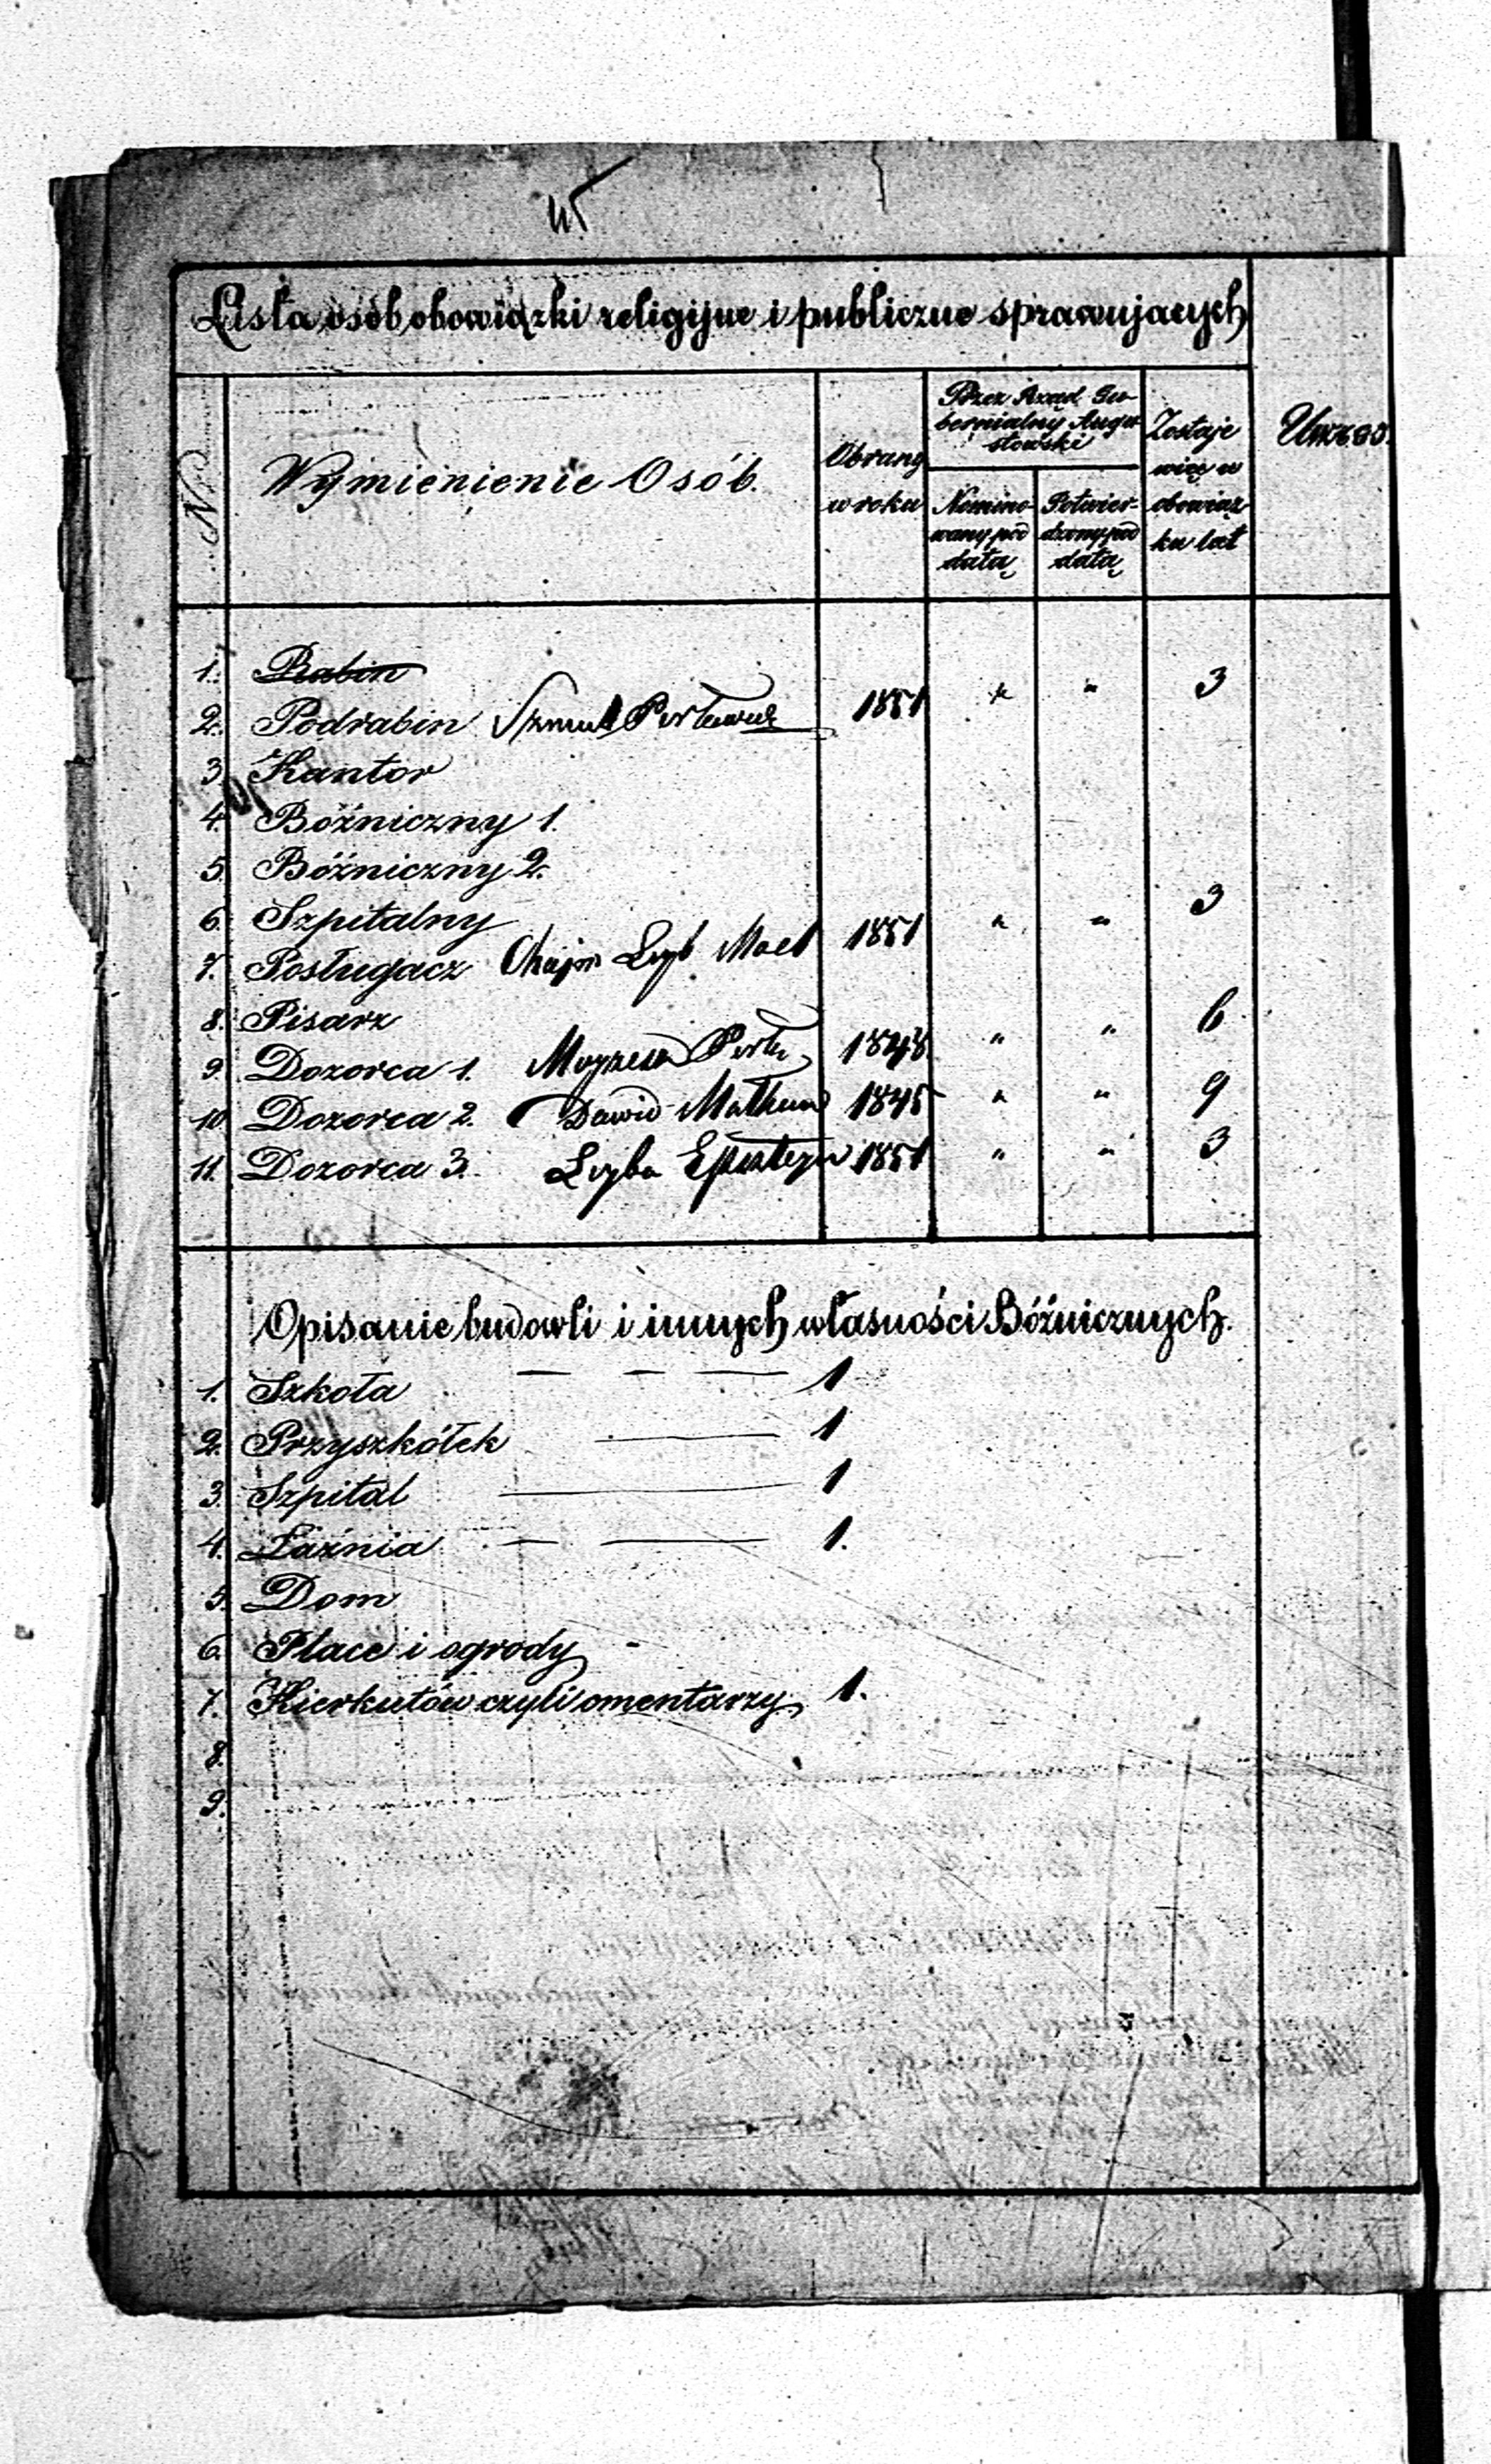 Lista osób obowiązki religijne i publiczne sprawujących
Nr Wymienienie Osób. Obrany w roku Przez Rząd Gubernialny Augustowski Zostaje więc w obowiązku lat Uwaga.
Nominowany pod datą Potwierdzony pod datą
1. Rabin
2. Podrabin Szmul 1851 " " 3
3. Kantor
4. Bóźniczny 1.
5. Bóźniczny 2.
6. Szpitalny
7. Posługacz Chajm Leyb 1851 " " 3
8. Pisarz
9. Dozorca 1. 1848 " " 6
10. Dozorca 2. Dawid 1845 " " 9
11. Dozorca 3. Leyba Epsteyn 1851 " " 3
Opisanie budowli i innych własności Bóźnicznych.
1. Szkoła — — — 1
2. Przyszkółek — 1
3. Szpital — 1
4. Łaźnia — — 1.
5. Dom
6. Place i ogrody -
7. Kierkutów czyli cmentarzy 1.
8.
9.